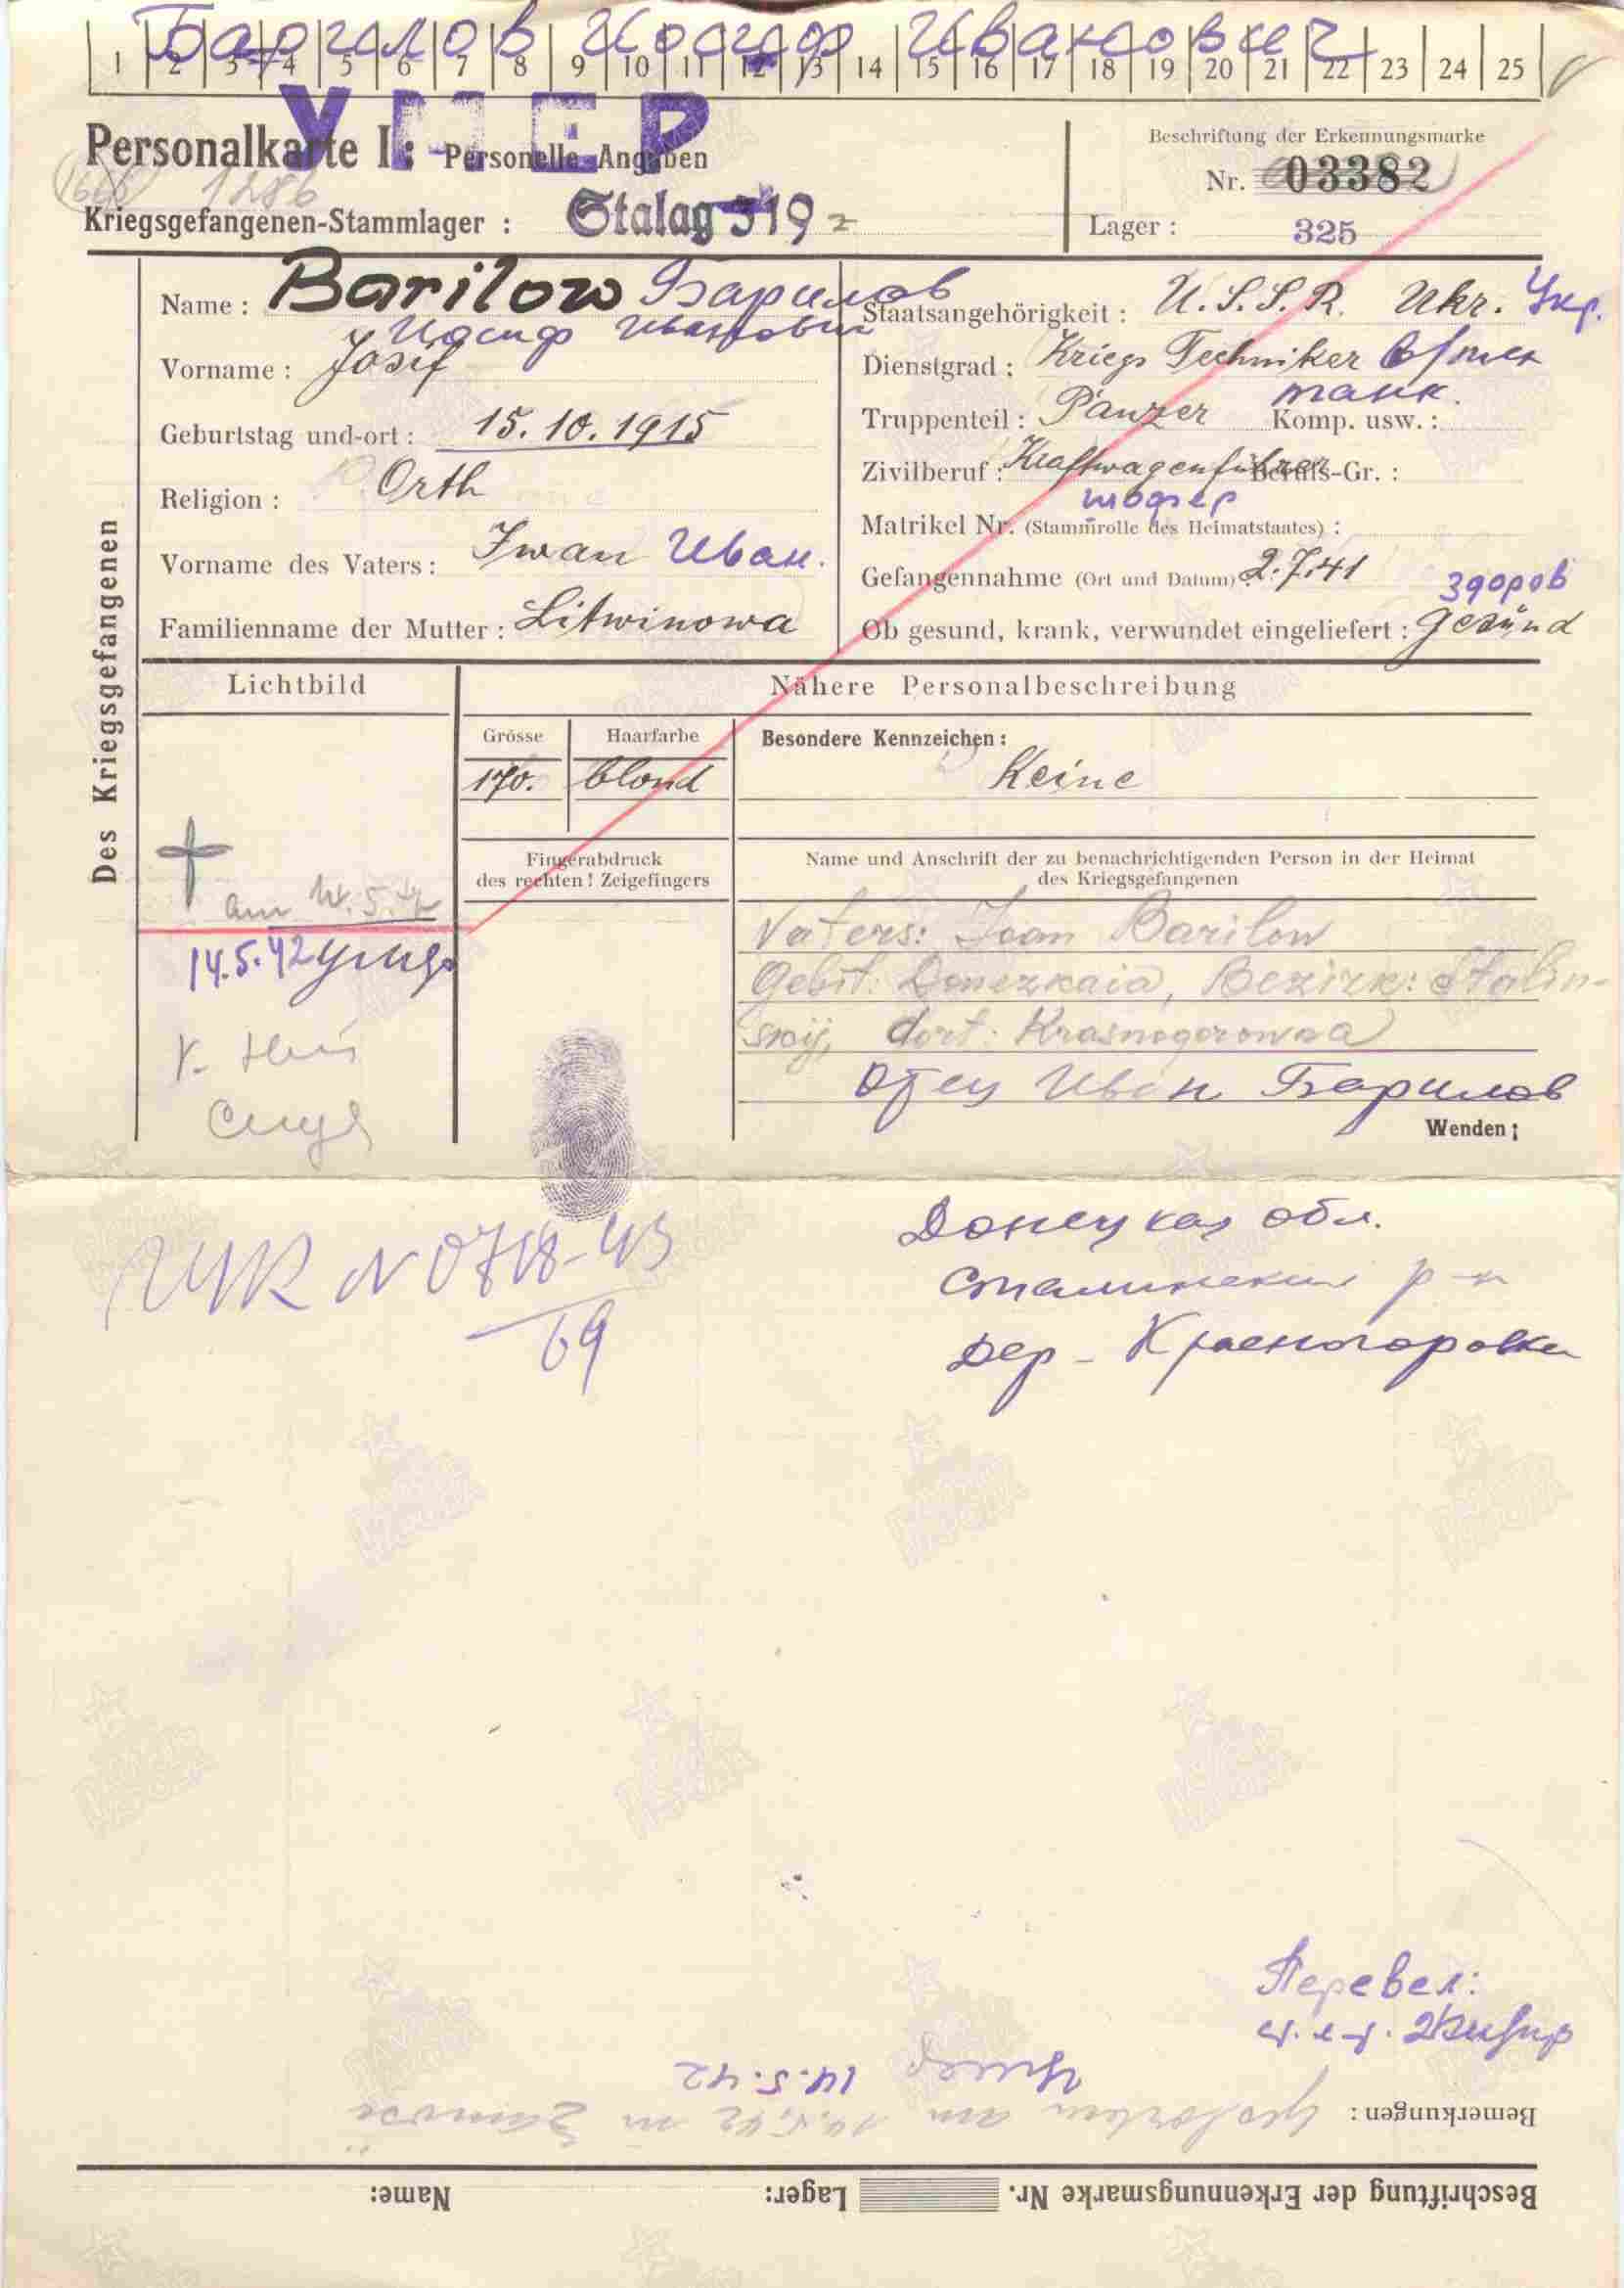 Барилов Иосиф Иванович
1 2 3 4 5 6 7 8 9 10 11 12 13 14 15 16 17 18 19 20 21 22 23 24 25
УМЕР
Personalkarte I: Personelle Angaben
1286
Kriegsgefangenen-Stammlager : Stalag 319 z
Beschriftung der Erkennungsmarke
Nr. 03382
Lager : 325
Des Kriegsgefangenen
Name : Barilow Барилов
Иосиф Иванович
Vorname : Josif
Geburtstag und-ort : 15.10.1915
Religion : Orth
Vorname des Vaters : Iwan Иван.
Familienname der Mutter : Litwinowa
Staatsangehörigkeit : U.S.S.R. Ukr. Укр.
Dienstgrad : Kriegs Techniker в/тех
танк.
Truppenteil : Panzer Komp. usw. :
Zivilberuf : Kraftwagenführer Berufs-Gr. :
шофер
Matrikel Nr. (Stammrolle des Heimatstaates) :
Gefangennahme (Ort und Datum) : 2.7.41
здоров
Ob gesund, krank, verwundet eingeliefert : gesund
Lichtbild
Nähere Personalbeschreibung
Grösse Haarfarbe Besondere Kennzeichen :
170. blond Keine
Fingerabdruck
des rechten ! Zeigefingers
Name und Anschrift der zu benachrichtigenden Person in der Heimat
des Kriegsgefangenen
am 14.5.42
14.5.42 умер
Vaters: Iwan Barilow
Gebit: Donezkaia, Bezirk: Stalin-
skij, dort: Krasnogorowka
Отец Иван Барилов
Wenden !
Донецкая обл.
Сталинский р-н
дер - Красногоровка
N 0718-43
69
Перевел:
Умер 14.5.42
Bemerkungen : Gestorben am 14.5.42 in Zamosc
Beschriftung der Erkennungsmarke Nr. Lager: Name: